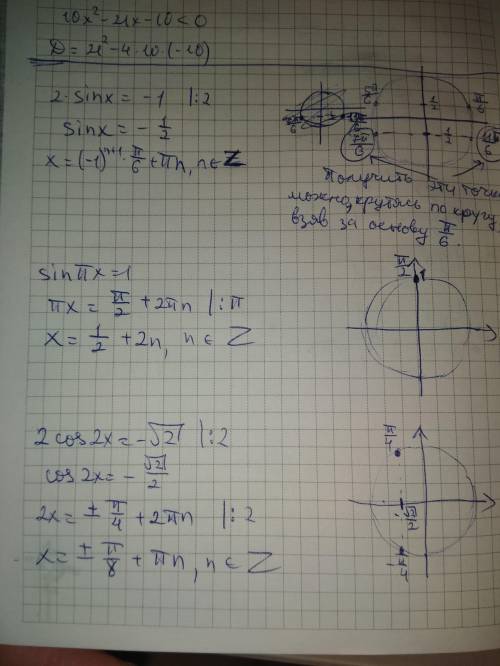 10x² - 21x - 10 < 0
D = 21² - 4·10·(-10)
2·sinx = -1 |:2
sinx = -1/2
x = (-1)ⁿ⁺¹·π/6 + πn, n ∈ Z
1/2
π/6
7π/6
-1/2
Получить эти точки
можно, крутясь по кругу
взяв за основу π/6.
sinπx = 1
πx = π/2 + 2πn |:π
x = 1/2 + 2n, n ∈ Z
π/2
1
2cos2x = -√2 |:2
cos2x = -√2/2
2x = ± π/4 + 2πn |:2
x = ± π/8 + πn, n ∈ Z
π/4
√2/2
-π/4